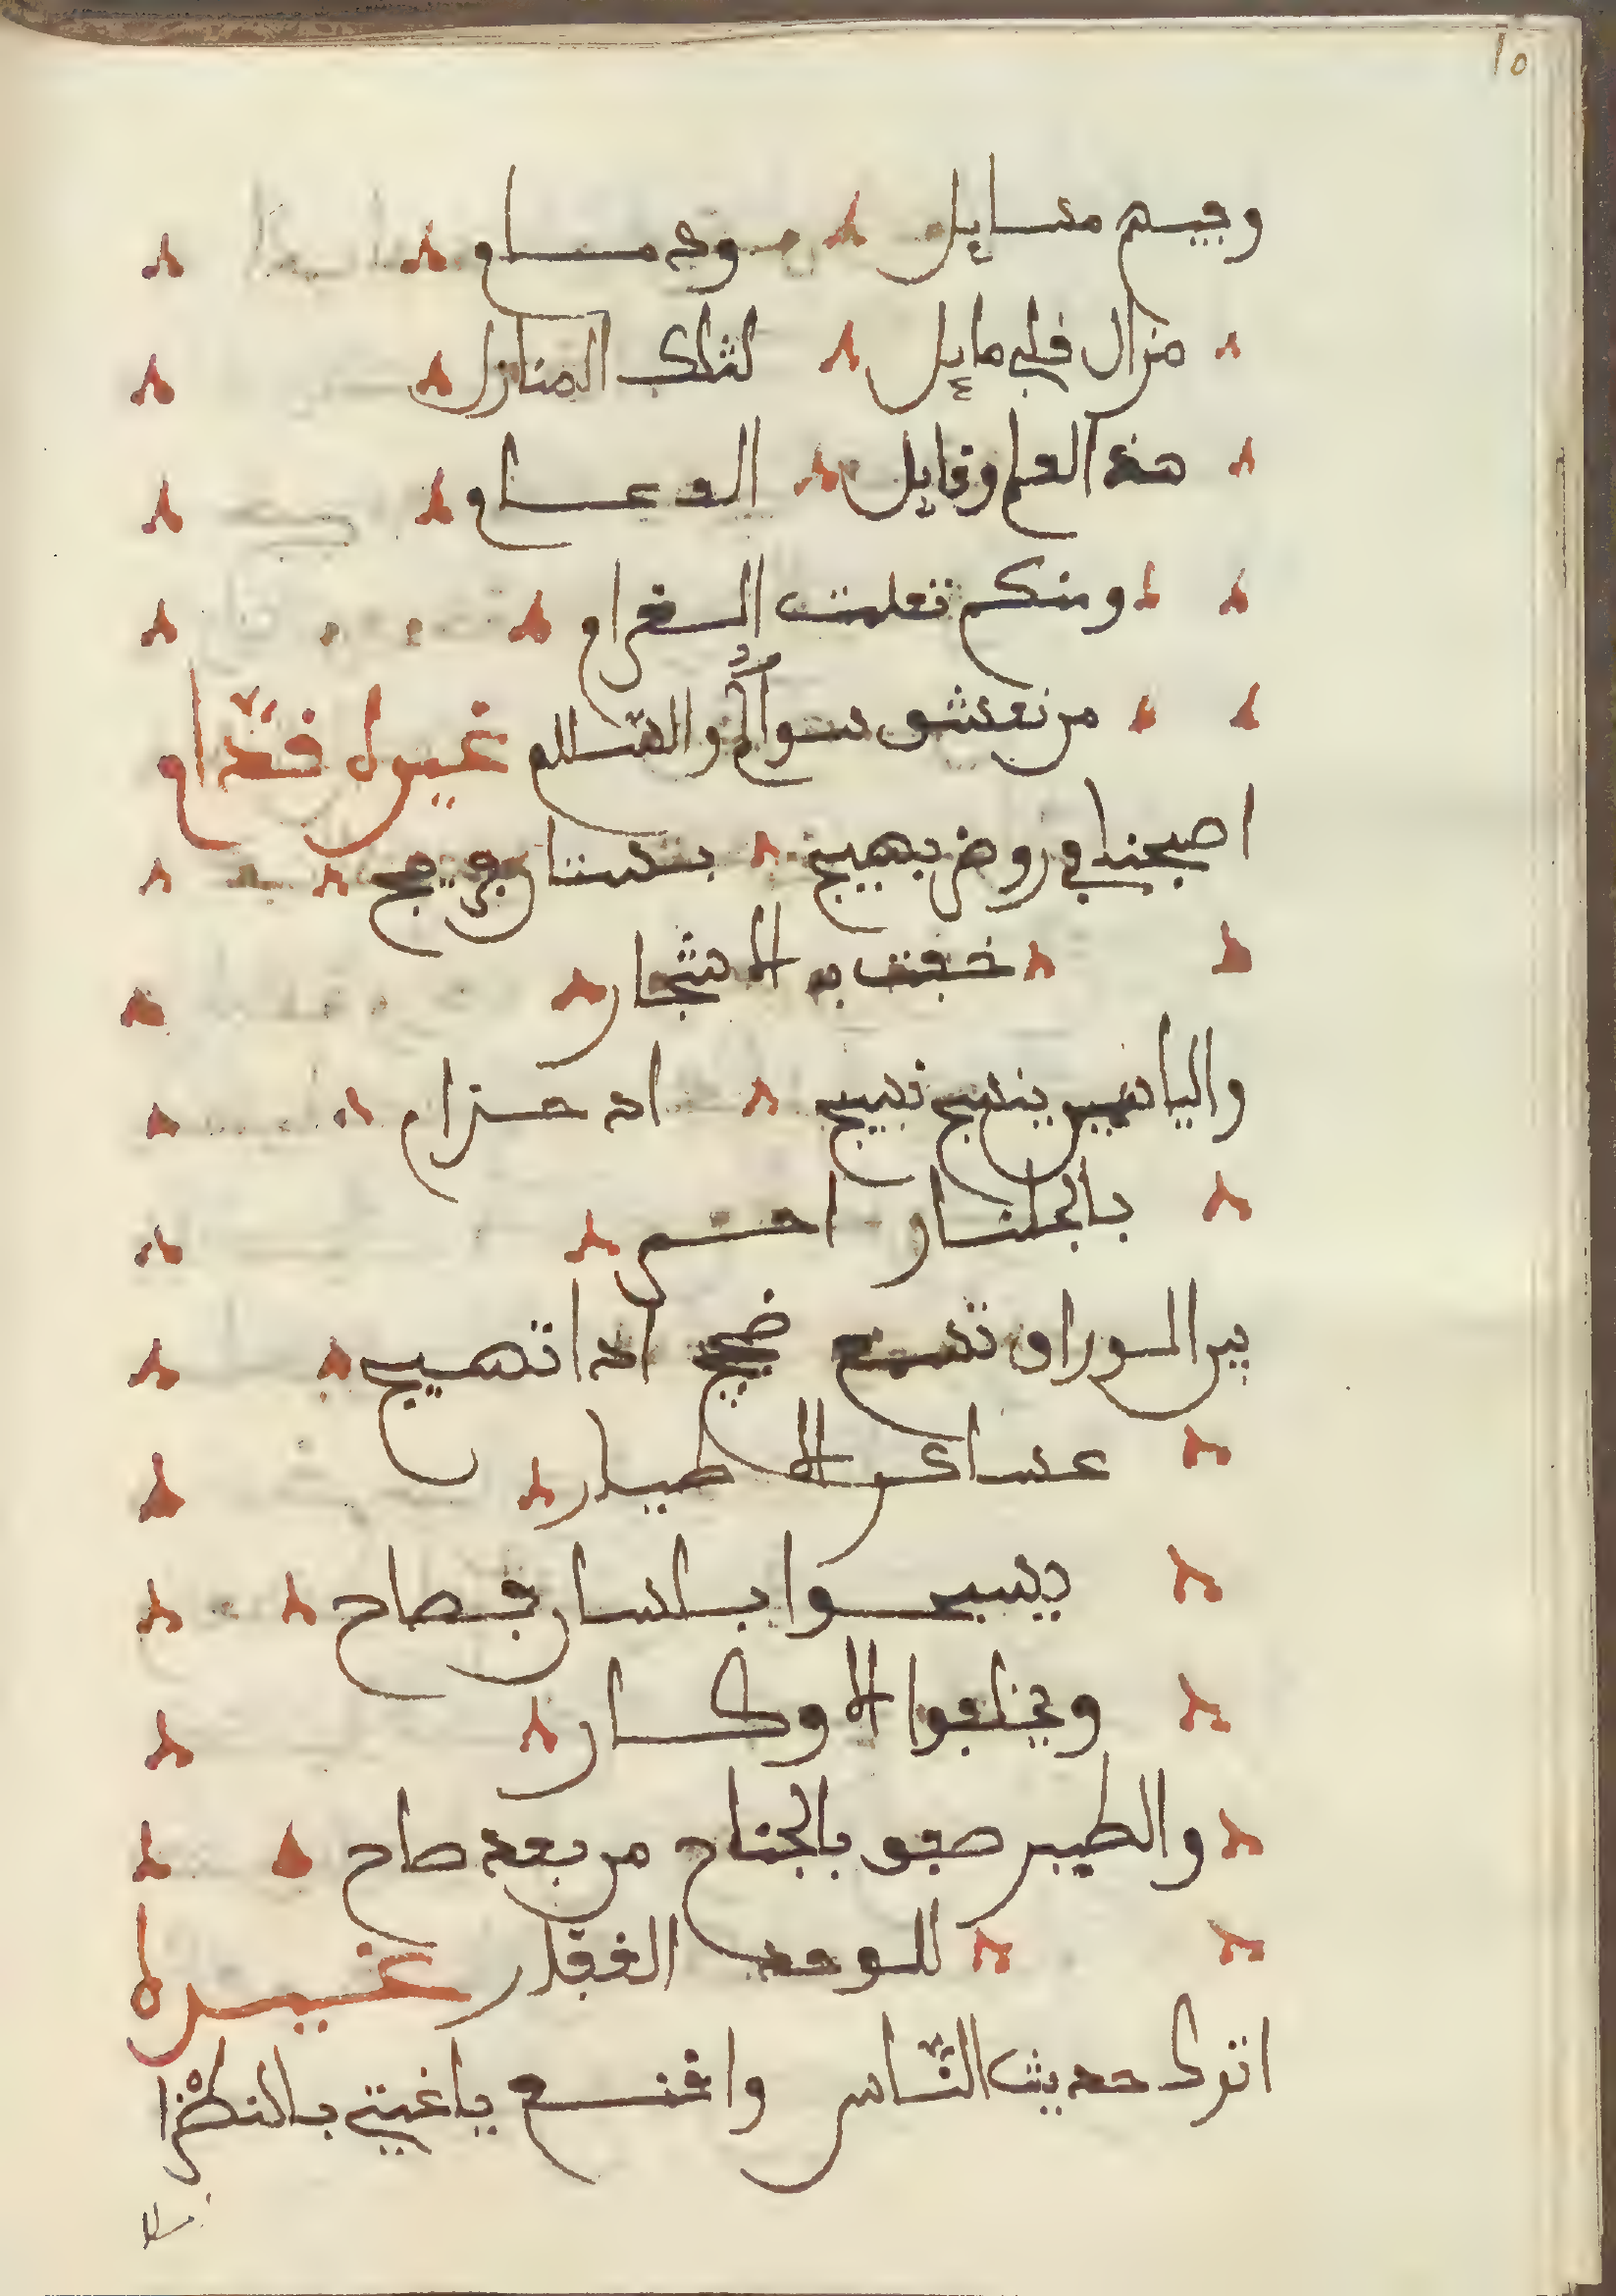 10
وجيم مسايل موده مسام
مزال قلبي مايل لتلك المنازل
هذه العلم وقايل الدعسام
ومنكم تعلمت الغرام
من نعشق سواكم والسلام غيرل قدام
اصبحنا في روض بهيج بنستان اريج
خفت به الاشجار
والياسمين ينسج نسيج اد حزام
بالجلنار احتم
بين السوراق تسمع ضجيج ادا تهيج
عساكر الاطيار
يسبحوا بالسان فصاح
ويخلفوا الاوكار
والطير صفو بالجناح من بعد صاح
للوحد الغفار غيره
اترك حديث الناس واقنع ياغيتي بالنظرا